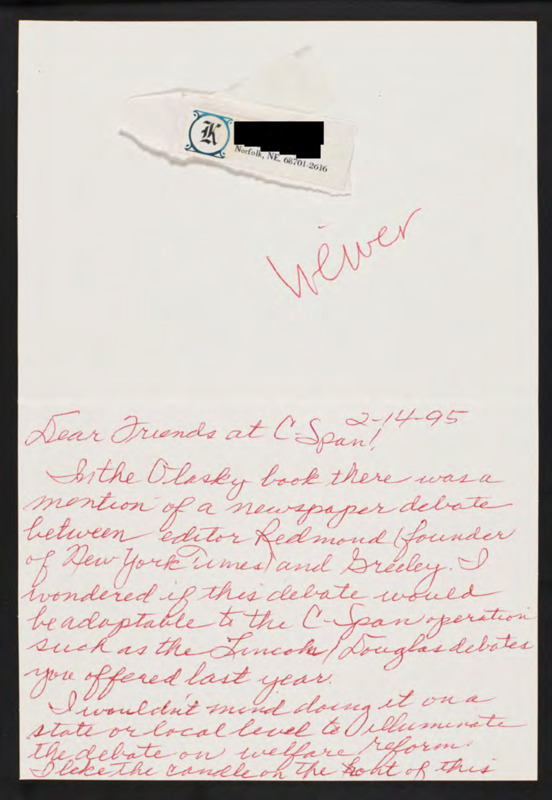 K
Norfolk, NE. 68701-2616
Viewer
2-14-95
Dear Friends at C-Span!
In the Olasky book there was a
mention of a newspaper debate
between editor Redmond (founder
of New York Times) and Greeley. I
wondered if this debate would
be adaptable to the C-Span operation
such as the Lincoln/Douglas debates
you offered last year.
I wouldn't mind doing it on a
state or local level to illuminate
the debate on welfare reform.
I like the candle on the front of this